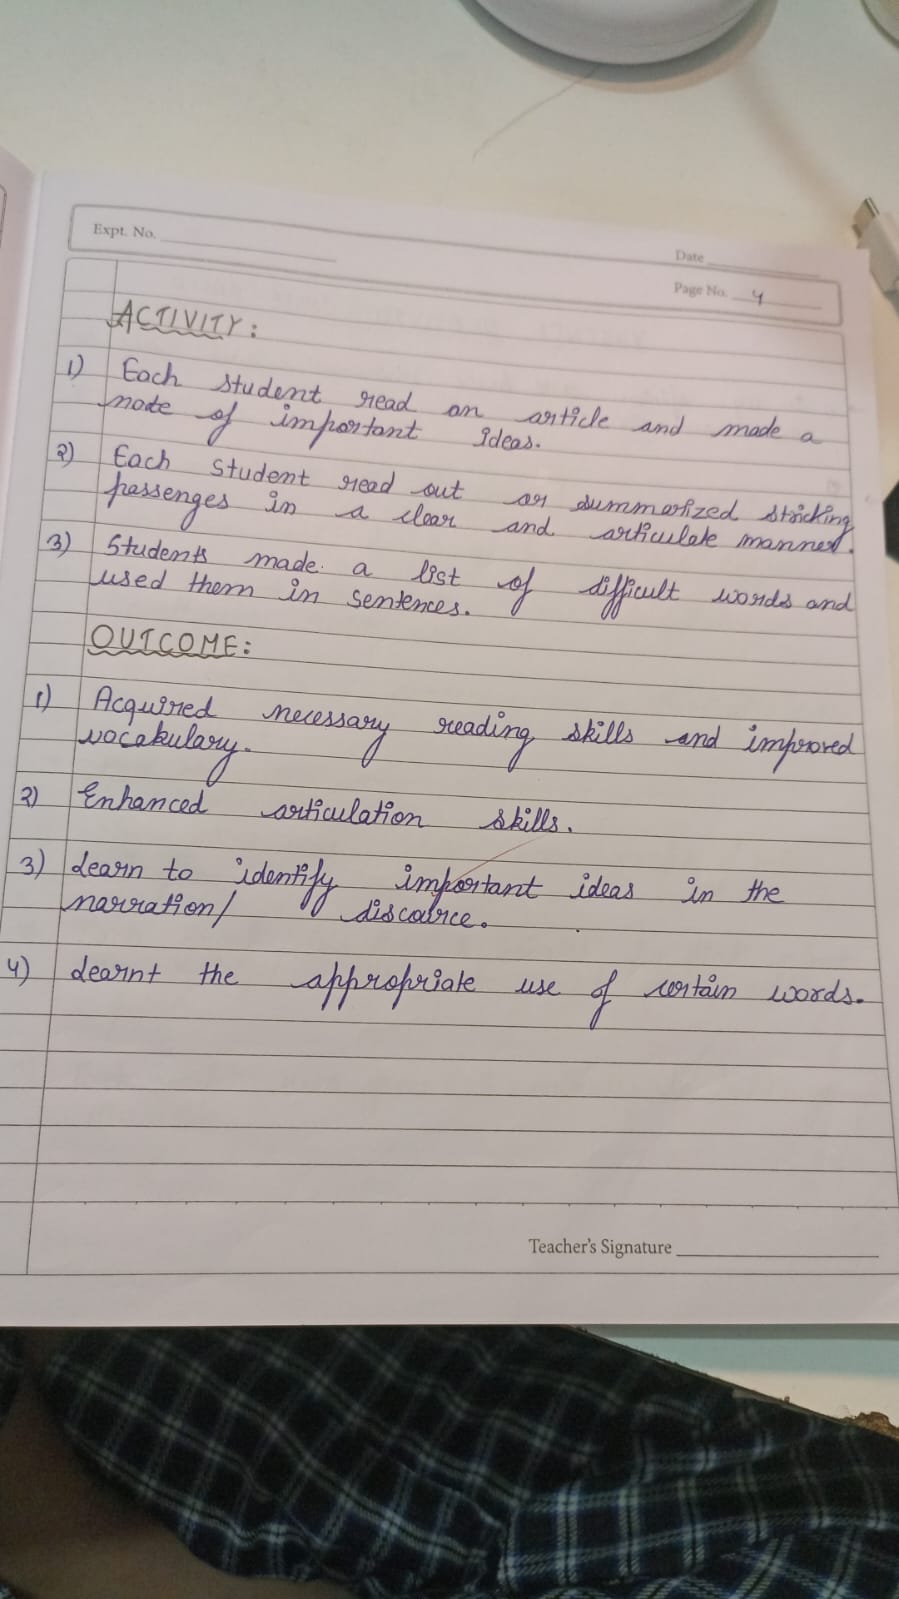 Expt. No.
Date
Page No. 4
ACTIVITY:
1) Each student read an article and made a
note of important ideas.
2) Each student read out or summarized stricking
passenges in a clear and articulate manner.
3) Students made a list of difficult words and
used them in sentences.
OUTCOME:
1) Acquired necessary reading skills and improved
vocabulary.
2) Enhanced articulation skills.
3) Learn to identify important ideas in the
narration/ discource.
4) Learnt the appropriate use of certain words.
Teacher's Signature